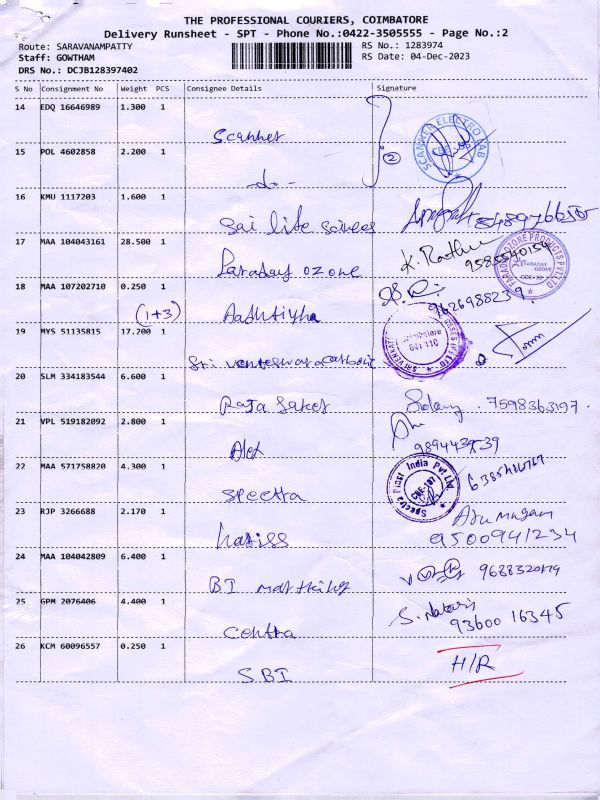 THE PROFESSIONAL COURIERS, COIMBATORE
Delivery Runsheet - SPT - Phone No.:0422-3505555 - Page No.:2
Route: SARAVANAMPATTY RS No.: 1283974
Staff: GOWTHAM RS Date: 04-Dec-2023
DRS No.: DCJB128397402
S No Consignment No Weight PCS Consignee Details Signature
14 EDQ 16646989 1.300 1
Scanner
SCANNER ELECTRO LAB
2
15 POL 4602858 2.200 1
do -
16 KMU 1117203 1.600 1
Sai lite
17 MAA 104043161 28.500 1
Faraday ozone
FARADAY OZONE PRODUCTS PVT LTD
FARADAY OZONE
18 MAA 107202710 0.250 1
9626988239
(1+3)
19 MYS 51135815 17.200 1
20 SLM 334183544 6.600 1
7598363197
21 VPL 519182092 2.800 1
Alex
22 MAA 571758820 4.300 1
Spectra
Spectra Plast India Pvt Ltd
23 RJP 3266688 2.170 1
Arumugam
9500941234
24 MAA 104042809 6.400 1
BI
25 GPM 2076406 4.400 1
93600 16345
26 KCM 60096557 0.250 1
SBI H/R